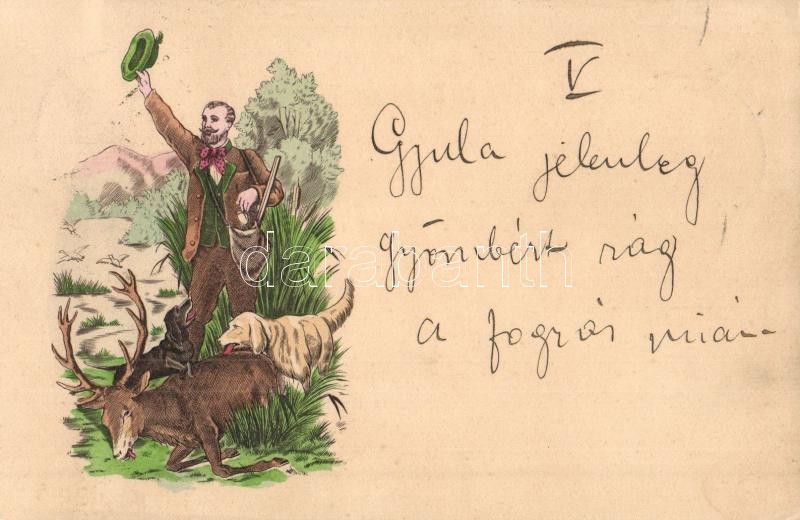 V
Gyula jelenleg
gyömbért rág
a fogzás miá--
darabanth